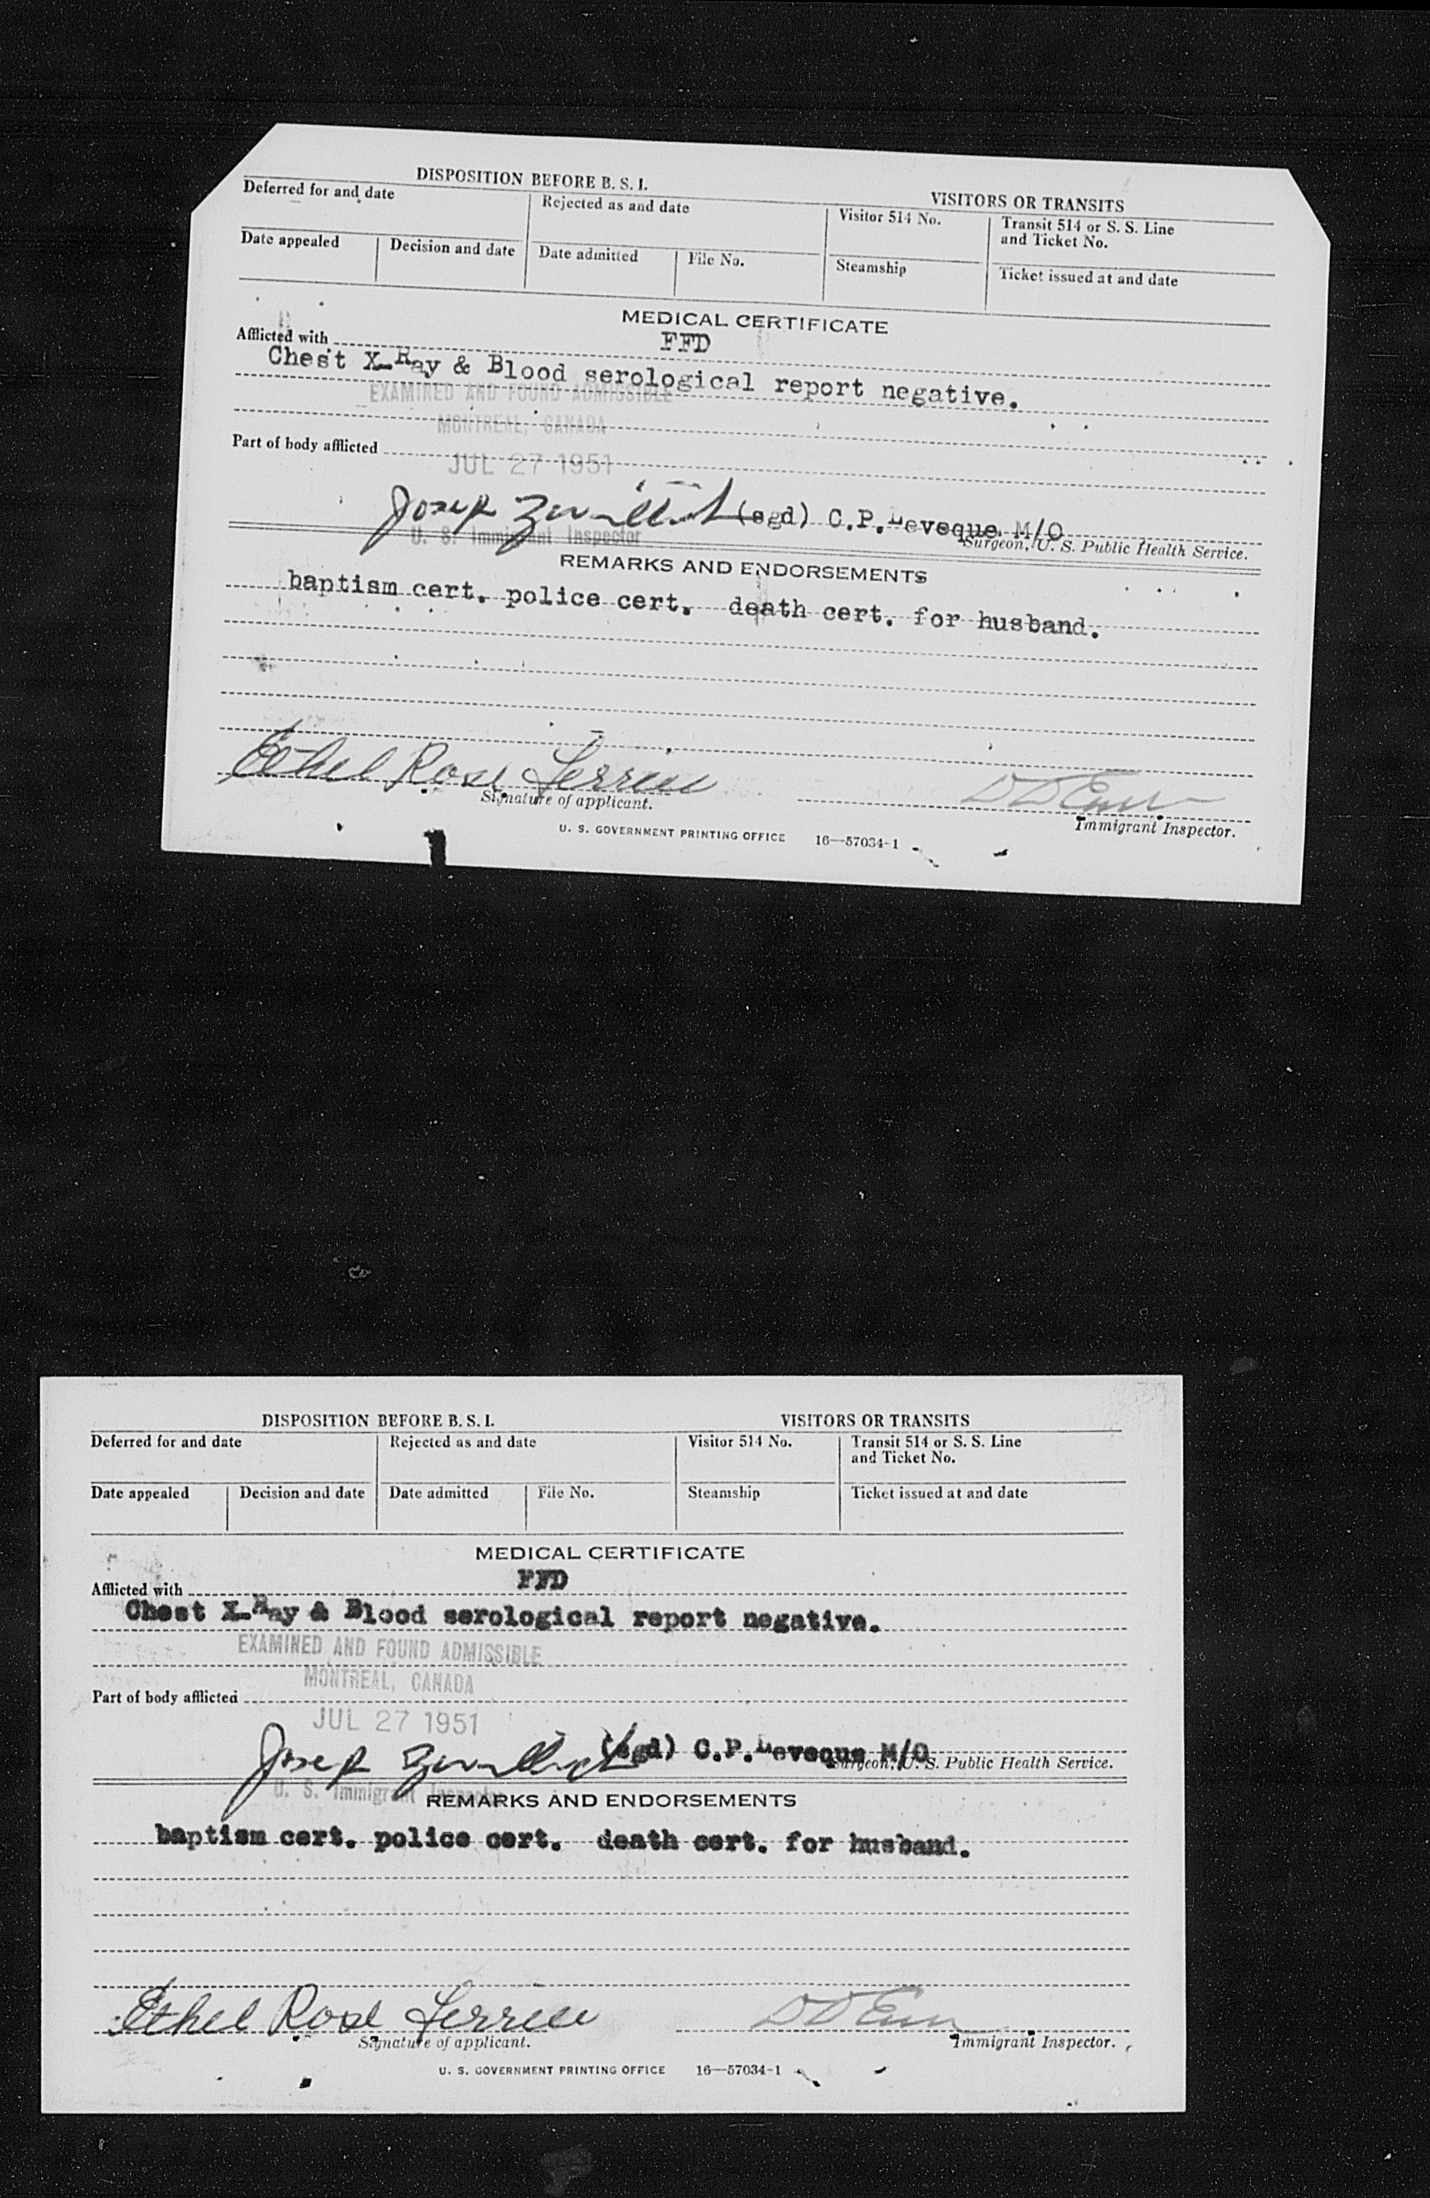 DISPOSITION BEFORE B. S. I.
VISITORS OR TRANSITS
Deferred for and date
Rejected as and date
Visitor 514 No.
Transit 514 or S. S. Line
and Ticket No.
Date appealed
Decision and date
Date admitted
File No.
Steamship
Ticket issued at and date
MEDICAL CERTIFICATE
Afflicted with FFD
Chest X-Ray & Blood serological report negative.
EXAMINED AND FOUND ADMISSIBLE
MONTREAL, CANADA
Part of body afflicted
JUL 27 1951
Josep (sgd) C.P.Leveque M/O
U. S. Immigrant Inspector
Surgeon, U. S. Public Health Service.
REMARKS AND ENDORSEMENTS
baptism cert. police cert. death cert. for husband.
Ethel Rose
Signature of applicant.
Immigrant Inspector.
U. S. GOVERNMENT PRINTING OFFICE 16—57034-1
DISPOSITION BEFORE B. S. I.
VISITORS OR TRANSITS
Deferred for and date
Rejected as and date
Visitor 514 No.
Transit 514 or S. S. Line
and Ticket No.
Date appealed
Decision and date
Date admitted
File No.
Steamship
Ticket issued at and date
MEDICAL CERTIFICATE
Afflicted with FFD
Chest X-Ray & Blood serological report negative.
EXAMINED AND FOUND ADMISSIBLE
MONTREAL, CANADA
Part of body afflicted
JUL 27 1951
Josep (sgd) C.P.Leveque M/O
Surgeon, U. S. Public Health Service.
U. S. Immigrant Inspector
REMARKS AND ENDORSEMENTS
baptism cert. police cert. death cert. for husband.
Ethel Rose
Signature of applicant.
Immigrant Inspector.
U. S. GOVERNMENT PRINTING OFFICE 16—57034-1